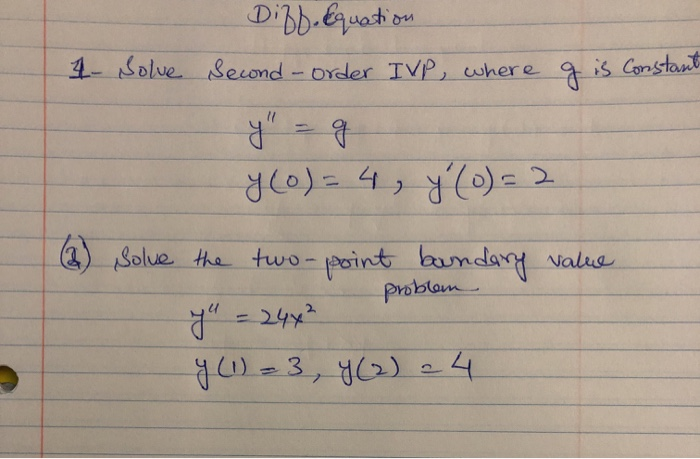 Diff. Equation
1- Solve Second-order IVP, where g is Constant
y'' = g
y(0) = 4, y'(0) = 2
(2) Solve the two-point boundary value
problem
y'' = 24x²
y(1) = 3, y(2) = 4